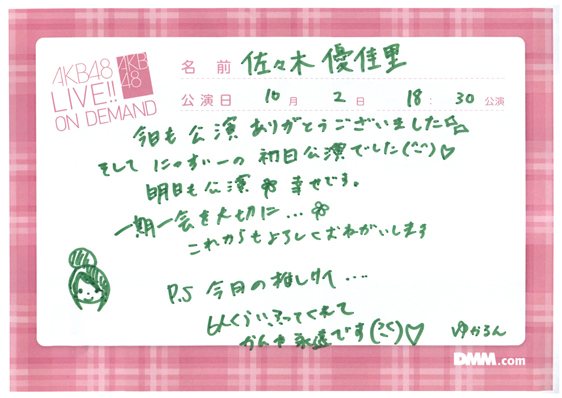 AKB48
LIVE!!
ON DEMAND
AKB
48
名 前 佐々木 優佳里
公演日 10 月 2 日 18 : 30 公演
今日も 公演 ありがとうございました
そして にゃずーの 初日公演でした(^^)♡
明日も公演 幸せです。
一期一会を大切に…
これからもよろしくおねがいします
P.S 今日の推しカメ…
くれて
です
ゆかるん
DMM.com